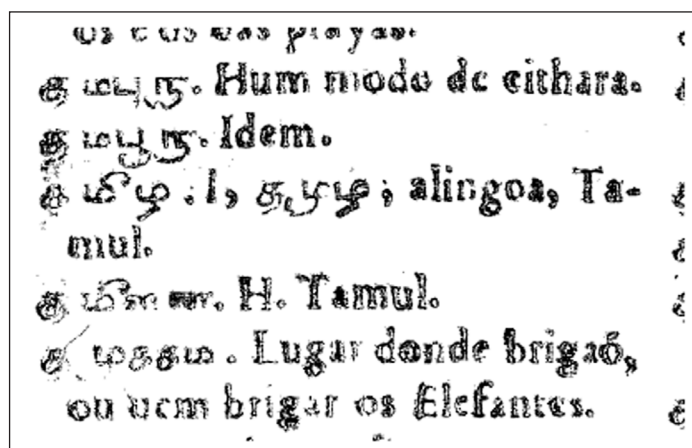 das playas.
தமபுரு. Hum modo de cithara.
தமபூரு. Idem.
தமிழ . l, தமுழ ; alingoa, Ta-
mul.
H. Tamul.
தமககம . Lugar donde brigaó,
ou uem brigar os Elefantes.